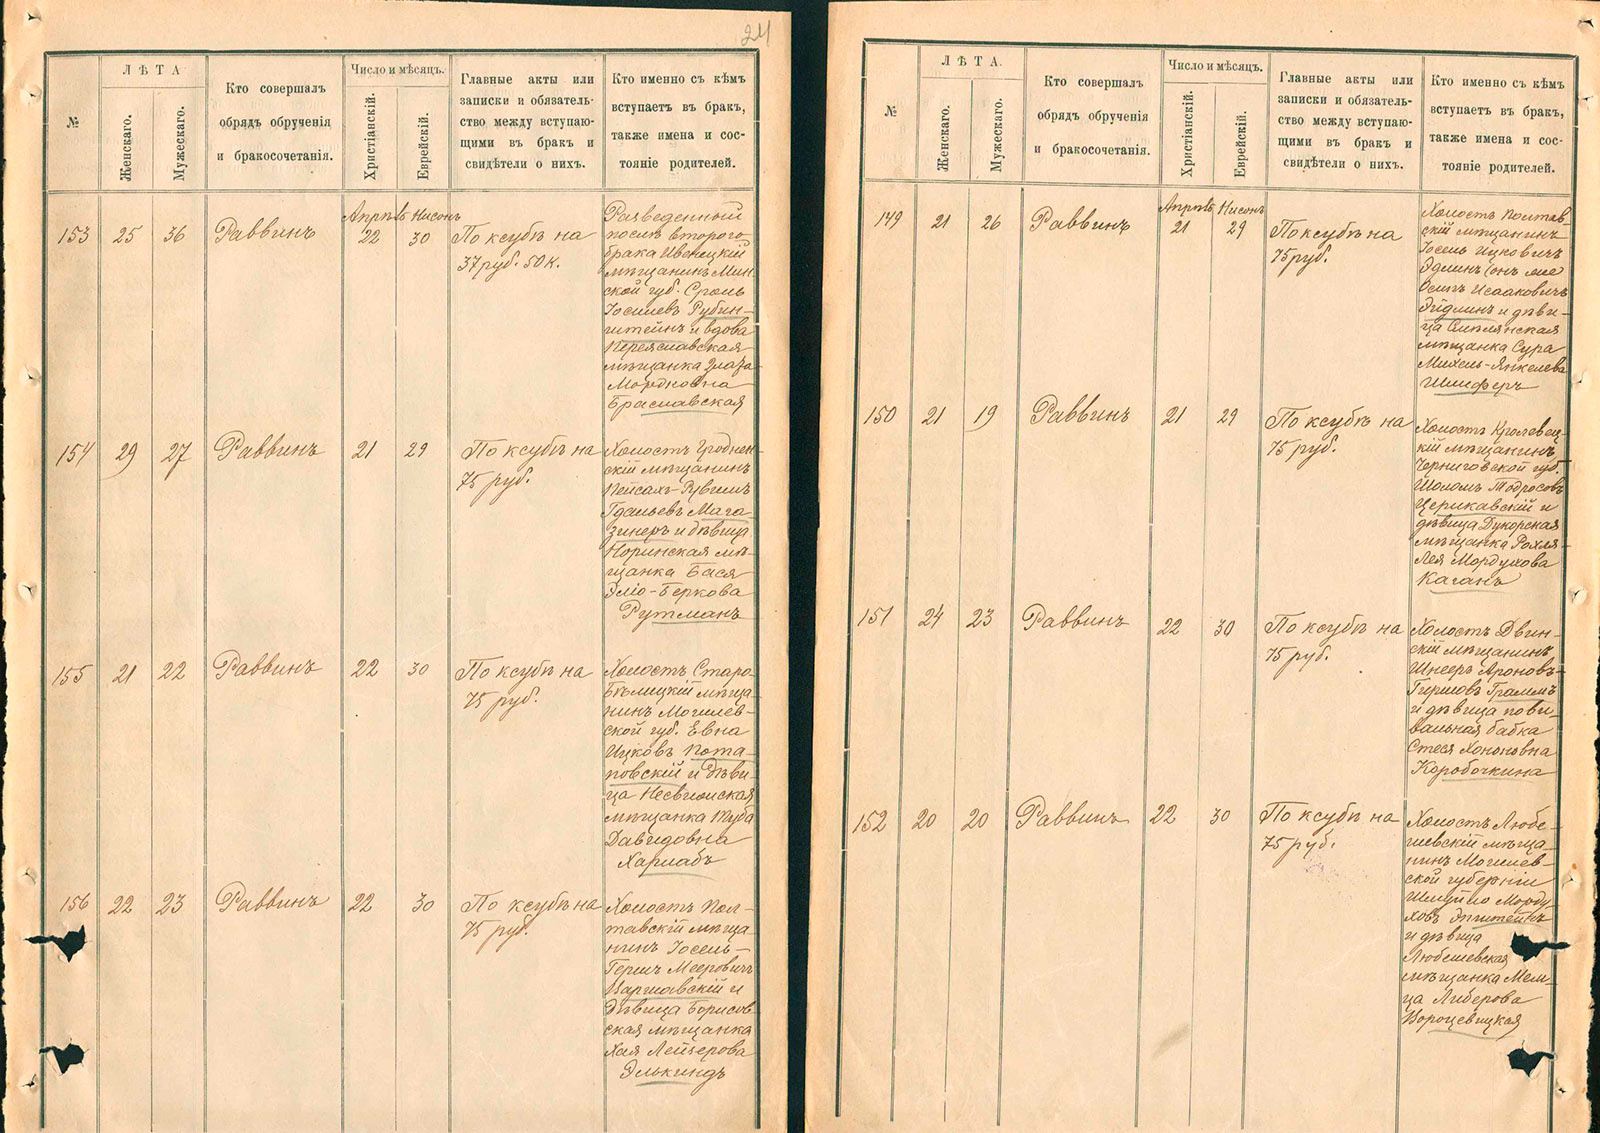 24
№
ЛѢТА
Женскаго.
Мужескаго.
Кто совершалъ
обрядъ обрученія
и бракосочетанія.
Число и мѣсяцъ.
Христіанскій.
Еврейскій.
Главные акты или
записки и обязатель-
ство между вступаю-
щими въ бракъ и
свидѣтели о нихъ.
Кто именно съ кѣмъ
вступаетъ въ бракъ,
также имена и сос-
тояніе родителей.
153 25 36 Раввинъ
Апрѣль Нисонъ
22 30
По ксубѣ на
37 руб. 50 к.
Разведенный
послѣ второго
брака Ивенецкій
мѣщанинъ Мин-
ской губ. Сроль
Іосилевъ Рубин-
штейнъ и вдова
Переяславская
мѣщанка Злата
Мордковна
Браславская
154 29 27 Раввинъ 21 29
По ксубѣ на
75 руб.
Холостъ Гроднен-
скій мѣщанинъ
Пейсахъ-Рувимъ
Гдальевъ Мага-
зинеръ и дѣвица
Норинская мѣ-
щанка Бася
Эліо-Беркова
Рутманъ
155 21 22 Раввинъ 22 30
По ксубѣ на
75 руб.
Холостъ Старо-
Бѣлицкій мѣща-
нинъ Могилев-
ской губ. Евна
Ицковъ Пота-
повскій и дѣви-
ца Несвижская
мѣщанка Куба
Давидовна
Харлабъ
156 22 23 Раввинъ 22 30
По ксубѣ на
75 руб.
Холостъ Пол-
тавскій мѣща
нинъ Іосель-
Гершъ Мееровичъ
Варшавскій и
дѣвица Борисов-
ская мѣщанка
Хая Лейзерова
Элькиндъ
№
ЛѢТА.
Женскаго.
Мужескаго.
Кто совершалъ
обрядъ обрученія
и бракосочетанія.
Число и мѣсяцъ.
Христіанскій.
Еврейскій.
Главные акты или
записки и обязатель-
ство между вступаю-
щими въ бракъ и
свидѣтели о нихъ.
Кто именно съ кѣмъ
вступаетъ въ бракъ,
также имена и сос-
тояніе родителей.
149 21 26 Раввинъ
Апрѣль Нисонъ
21 29
По ксубѣ на
75 руб.
Холостъ Полтав-
скій мѣщанинъ
Іосель Ицковичъ
Эдлинъ онъ же
Осипъ Исааковичъ
Эйдлинъ и дѣви-
ца Смѣлянская
мѣщанка Сура
Михель-Янкелева
Шлиферъ
150 21 19 Раввинъ 21 29
По ксубѣ на
75 руб.
Холостъ Кролевец-
кій мѣщанинъ
Черниговской губ.
Шоломъ Тодросовъ
Церикавскій и
дѣвица Дукорская
мѣщанка Рохля-
Лея Мордухова
Каганъ
151 24 23 Раввинъ 22 30
По ксубѣ на
75 руб.
Холостъ Двин-
скій мѣщанинъ
Шнееръ Ароновъ-
Гиршовъ Граммъ
и дѣвица пови-
вальная бабка
Стеся Хононовна
Коробочкина
152 20 20 Раввинъ 22 30
По ксубѣ на
75 руб.
Холостъ Любе-
шевскій мѣща-
нинъ Могилев-
ской губерніи
Морду-
ховъ Эпштейнъ
и дѣвица
Любешевская
мѣщанка
Либерова
Вороцевицкая